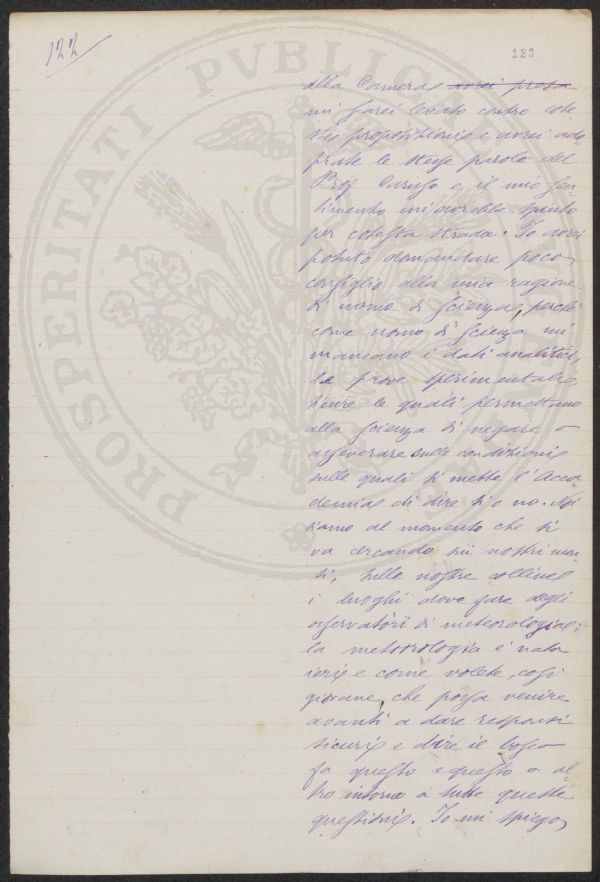 122
123
PROSPERITATI PVBLICAE
alla Camera avrei presa
mi sarei levato contro cote
ste proposizioni e avrei ado
prate le stesse parole del
Prof. Caruso e il mio sen
timento mi avrebbe spinto
per cotesta strada. Io avrei
potuto domandare poco
consiglio alla mia ragione
di uomo di scienza, perchè
come uomo di scienza mi
mancano i dati analitici,
le prove sperimentali
sicure le quali permettano
alla scienza di negare o
asseverare sulle condizioni
sulle quali si mette l'Acca
demia di dire si o no. Noi
siamo al momento che si
va cercando sui nostri mon
ti, sulle nostre colline
i luoghi dove fare degli
osservatori di meteorologia;
la meteorologia è nata
ieri e come volete, così
giovane, che possa venire
avanti a dare responsi
sicuri e dire il bosco
fa questo e questo o al
tro intorno a tutte queste
questioni. Io mi spiego